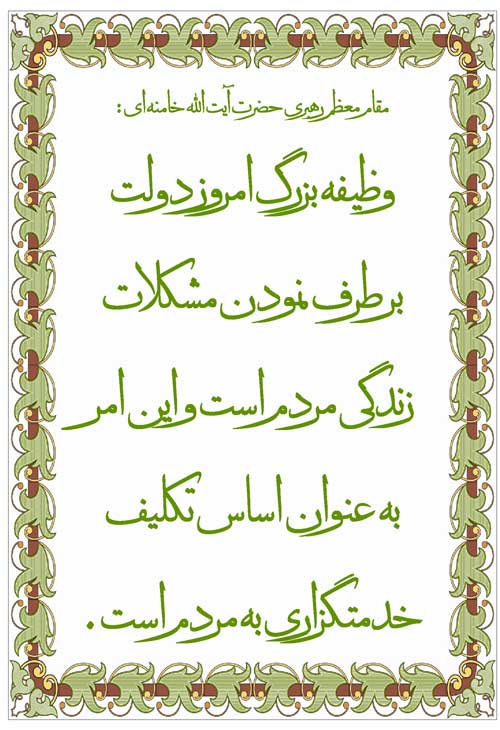 مقام معظم رهبری حضرت آیت الله خامنه ای :
وظیفه بزرگ امروز دولت
برطرف نمودن مشکلات
زندگی مردم است و این امر
به عنوان اساس تکلیف
خدمتگزاری به مردم است .